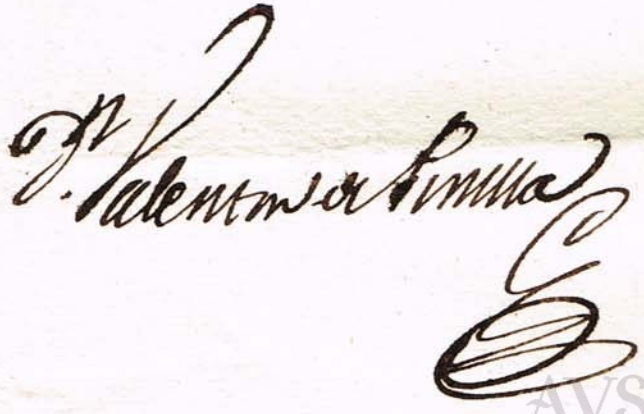 Dn. Valentin de Pinilla
AVS